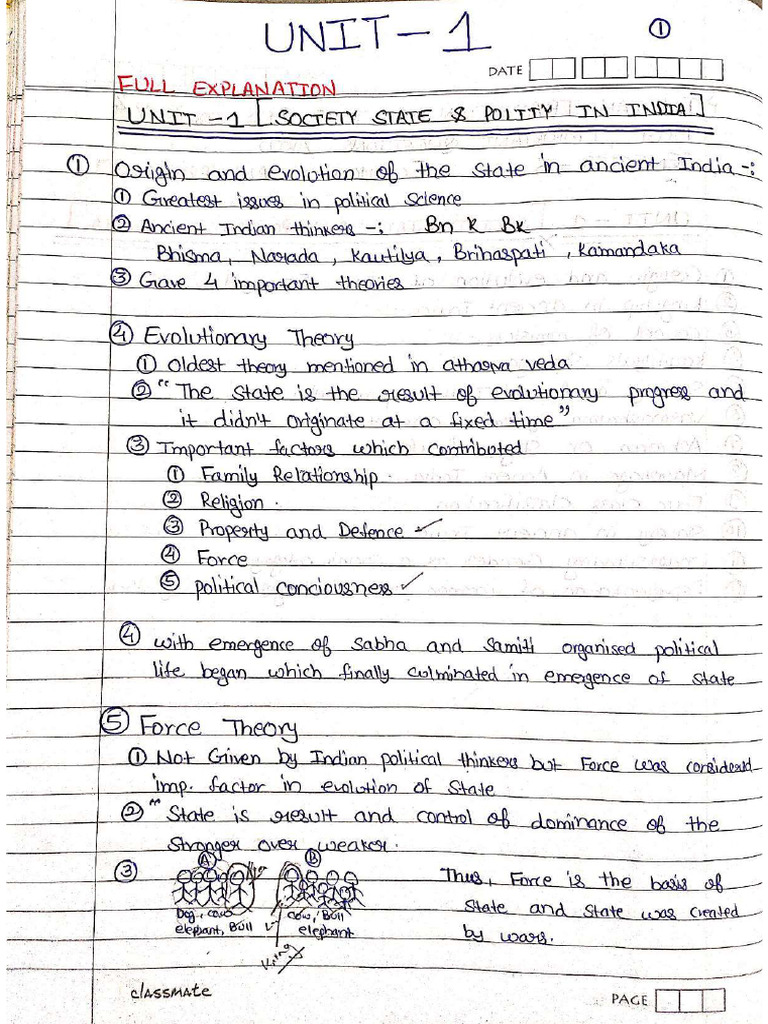 UNIT - 1
1
DATE
FULL EXPLANATION
UNIT - 1 [SOCIETY STATE & POLITY IN INDIA]
① Origin and evolution of the state in ancient India -:
① Greatest issues in political science
② Ancient Indian thinkers -: Bn K Bk
Bhisma, Narada, Kautilya, Brihaspati, Kamandaka
③ Gave 4 important theories
④ Evolutionary Theory
① Oldest theory mentioned in atharva veda
② "The State is the result of evolutionary progress and
it didn't originate at a fixed time"
③ Important factors which contributed
① Family Relationship.
② Religion.
③ Property and Defence ✓
④ Force
⑤ political conciousness ✓
④ with emergence of Sabha and Samiti organised political
life began which finally culminated in emergence of state
⑤ Force Theory
① Not Given by Indian political thinkers but Force was considered
imp. factor in evolution of State
② "State is result and control of dominance of the
stronger over weaker.
③ A B Thus, Force is the basis of
Dog, cow cow, Bull state and state was created
elephant, Bull elephant by wars.
King
classmate
PAGE